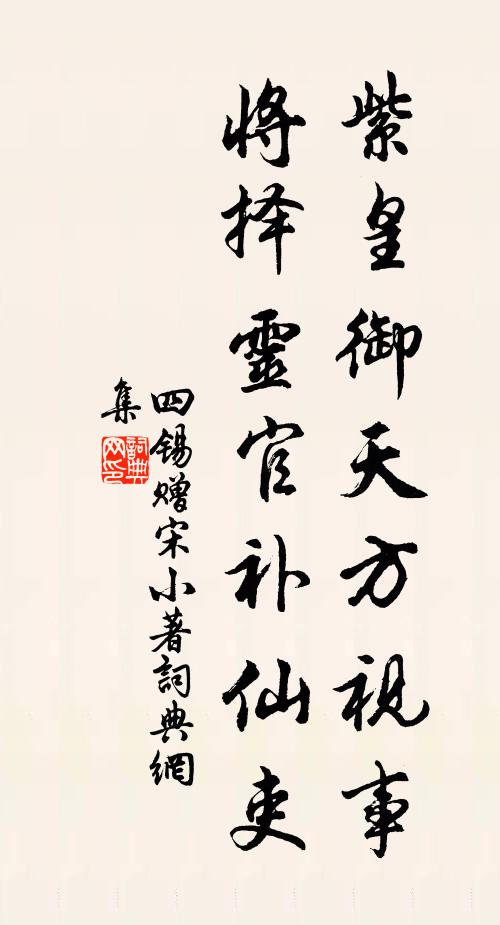 紫皇御天方視事
将择靈官补仙吏
四锡赠宋小著詞典網
集
詞典网印